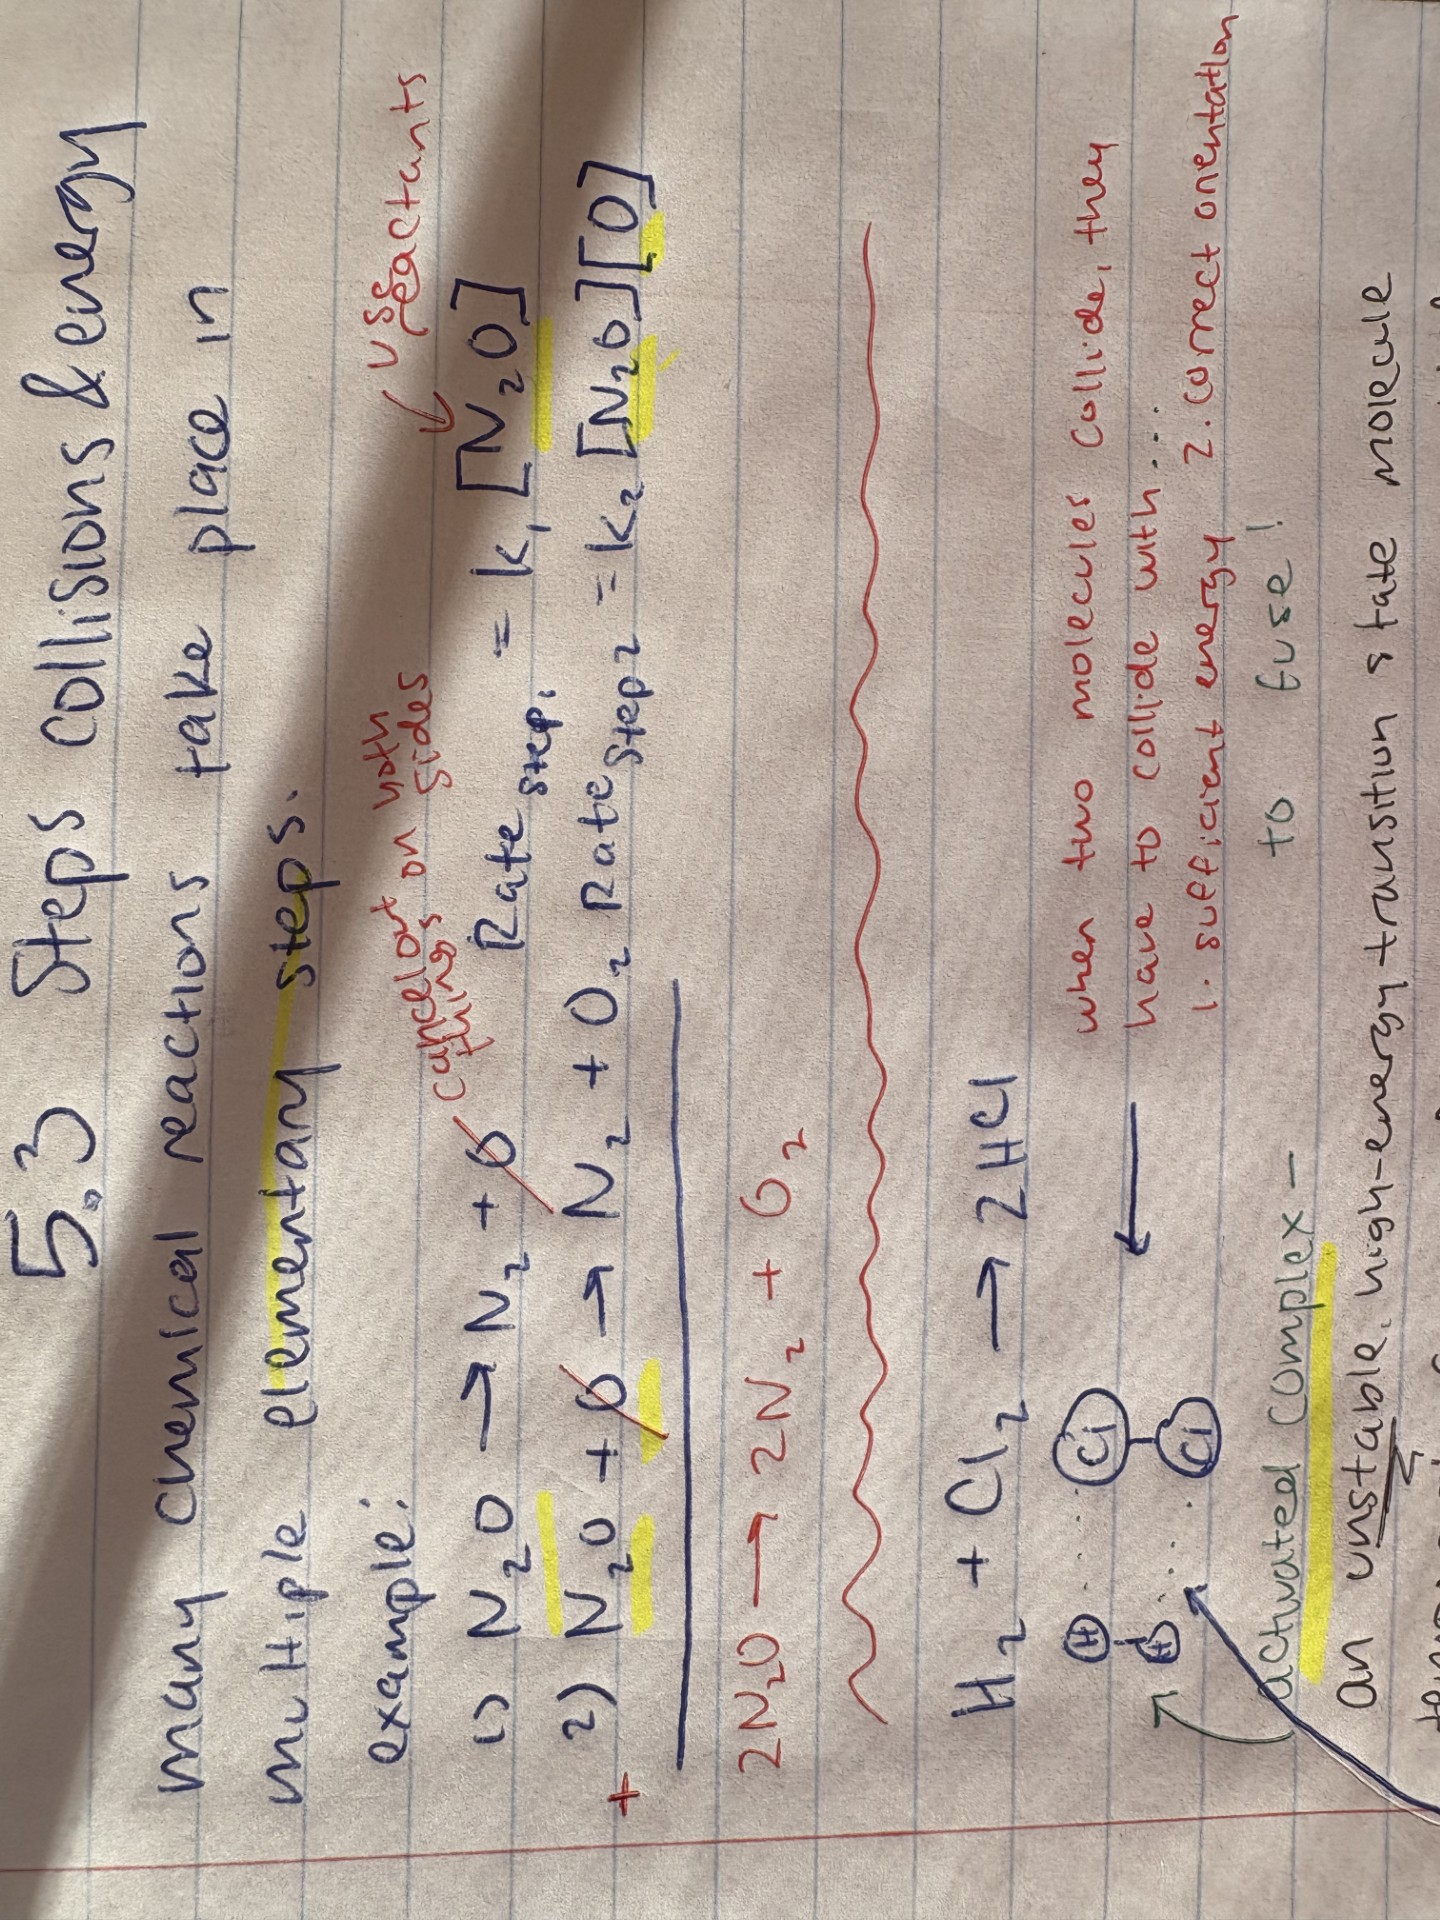 5.3 Steps collisions & energy
many chemical reactions take place in
multiple elementary steps.
example:
cancel out things on both sides
use reactants
1) N₂O → N₂ + O Rate step 1 = k₁ [N₂O]
2) N₂O + O → N₂ + O₂ Rate step 2 = k₂ [N₂O][O]
+
2N₂O → 2N₂ + O₂
H₂ + Cl₂ → 2HCl
H Cl
H Cl
when two molecules collide, they
have to collide with...
1. sufficient energy 2. correct orientation
to fuse!
activated complex –
an unstable, high-energy transition state molecule